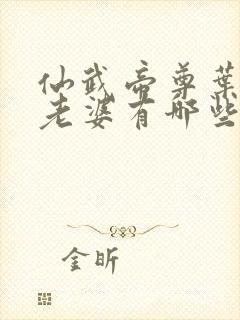 仙武帝尊葉
老婆有哪些
金昕